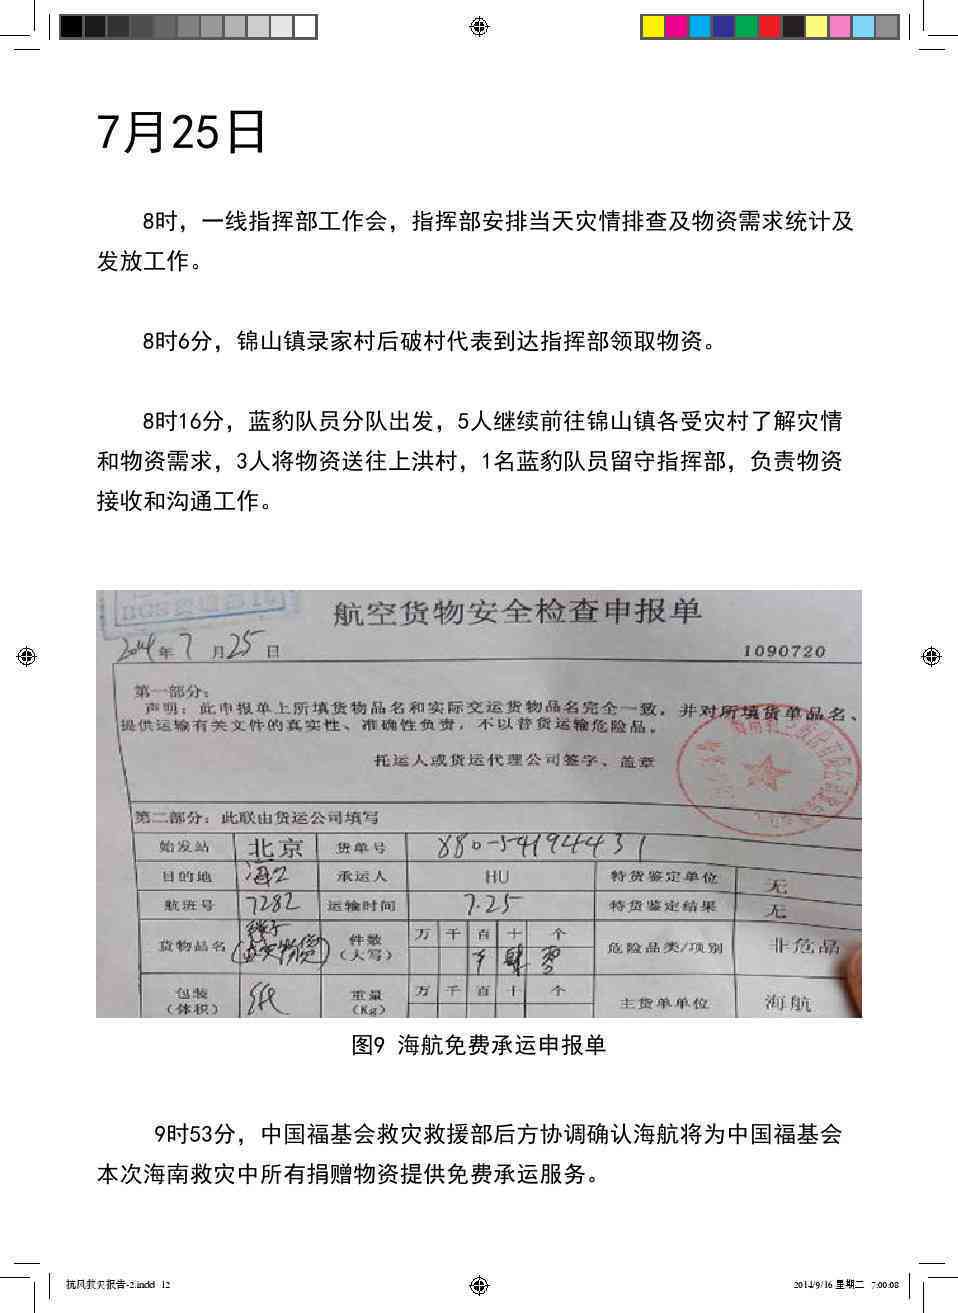 7月25日
8时，一线指挥部工作会，指挥部安排当天灾情排查及物资需求统计及
发放工作。
8时6分，锦山镇录家村后破村代表到达指挥部领取物资。
8时16分，蓝豹队员分队出发，5人继续前往锦山镇各受灾村了解灾情
和物资需求，3人将物资送往上洪村，1名蓝豹队员留守指挥部，负责物资
接收和沟通工作。
航空货物安全检查申报单
2014年7月25日 1090720
第一部分：
声明：此申报单上所填货物品名和实际交运货物品名完全一致，并对所填货单品名、
提供运输有关文件的真实性、准确性负责，不以普货运输危险品。
托运人或货运代理公司签字、盖章
第二部分：此联由货运公司填写
始发站 北京 货单号 880-54194431
目的地 海口 承运人 HU 特货鉴定单位 无
航班号 7282 运输时间 7.25 特货鉴定结果 无
货物品名 件数 万 千 百 十 个 危险品类/项别 非危品
（大写） 肆 零
包装 纸 重量 万 千 百 十 个 主货单单位 海航
（体积） （Kg）
图9 海航免费承运申报单
9时53分，中国福基会救灾救援部后方协调确认海航将为中国福基会
本次海南救灾中所有捐赠物资提供免费承运服务。
抗风救灾报告-2.indd 12 2014/9/16 星期二 7:00:08